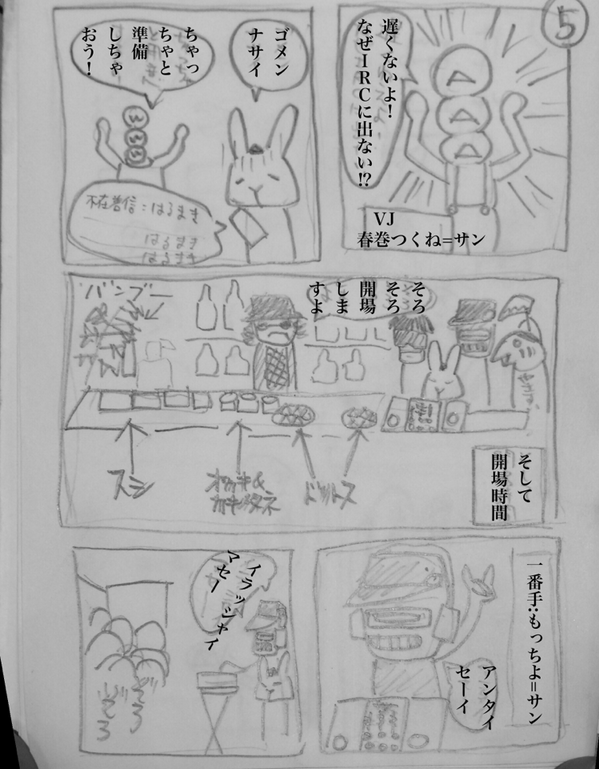 5
遅くないよ！
なぜIRCに出ない!?
VJ
春巻つくね=サン
ゴメン
ナサイ
ちゃっ
ちゃと
準備
しちゃ
おう！
不在着信:はるまき
はるまき
はるまき
バンブー
そろ
そろ
開場
しま
すよ
スシ
ドリトス
そして
開場時間
一番手:もっちよ=サン
アンタイ
セーイ
イラッシャイ
マセー
ぞろ
ぞろ